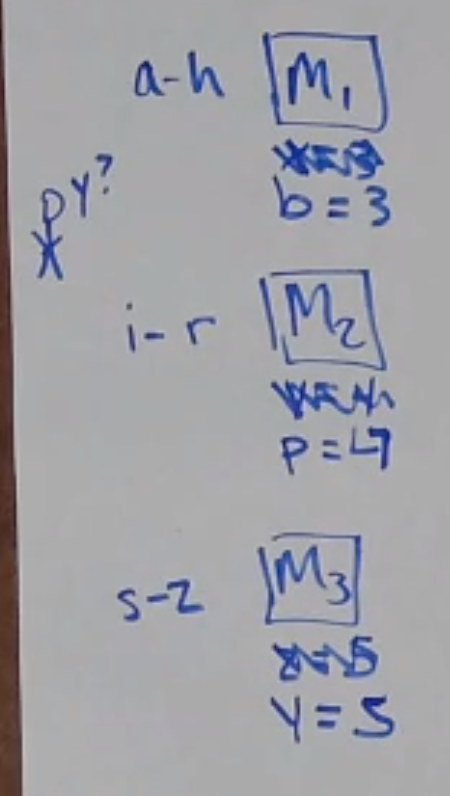 a-h M1
b = 3
Y?
i-r M2
p = 4
s-z M3
Y = 5